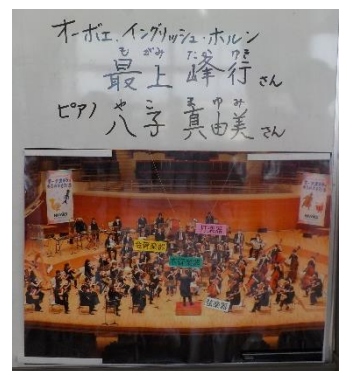 オーボエ、イングリッシュ・ホルン
もがみ たか ゆき
最上 峰行さん
ピアノ
やこ まゆみ
八子 真由美さん
打楽器
金管楽器
木管楽器
弦楽器